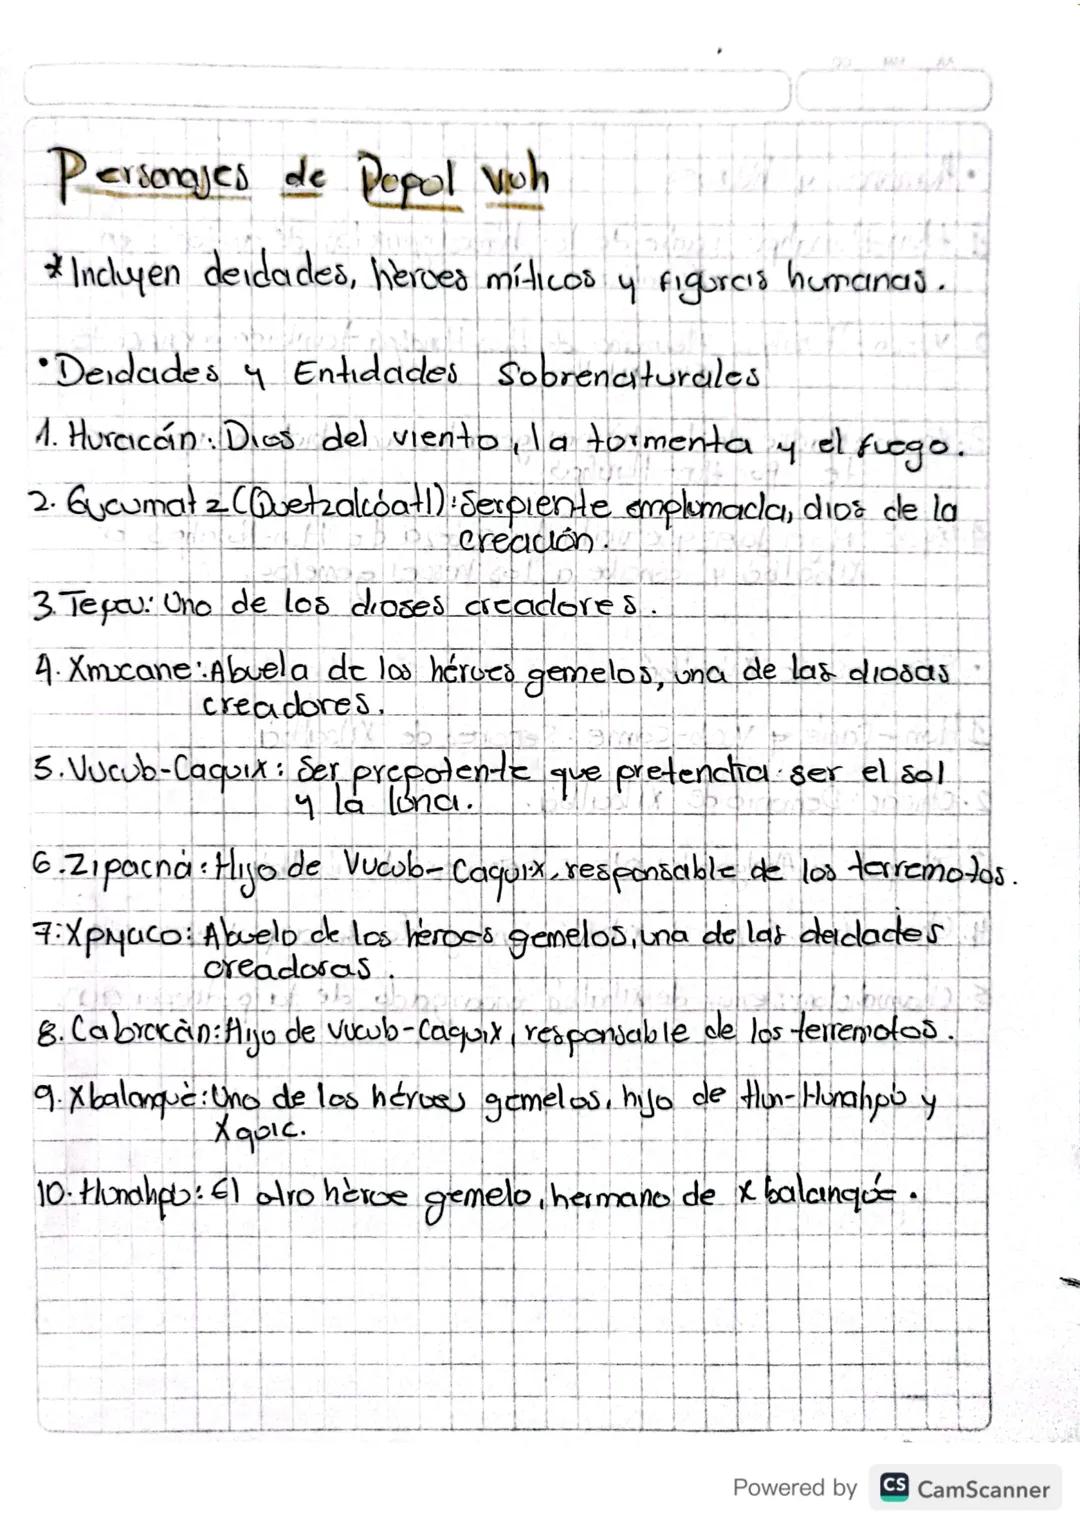 Personajes de Popol vuh
* Incluyen deidades, hèroes míticos y figuras humanas.
• Deidades y Entidades Sobrenaturales
1. Huracán: Dios del viento, la tormenta y el fuego.
2. Gucumatz (Quetzalcóatl): Serpiente emplumada, dios de la
creación.
3. Tepeu: Uno de los dioses creadores.
4. Xmucane: Abuela de los héroes gemelos, una de las diosas
creadores.
5. Vucub-Caquix: Ser prepotente que pretendia ser el sol
y la luna.
6. Zipacná: Hijo de Vucub-Caquix, responsable de los terremotos.
7: Xpiyaco: Abuelo de los hèroes gemelos, una de las deidades
creadoras.
8. Cabracàn: Hijo de Vucub-Caquix, responsable de los terremotos.
9. Xbalanquè: Uno de los héroes gemelos, hijo de Hun-Hunahpù y
Xquic.
10. Hunahpù: El otro hèroe gemelo, hermano de Xbalanqué.
Powered by CS CamScanner